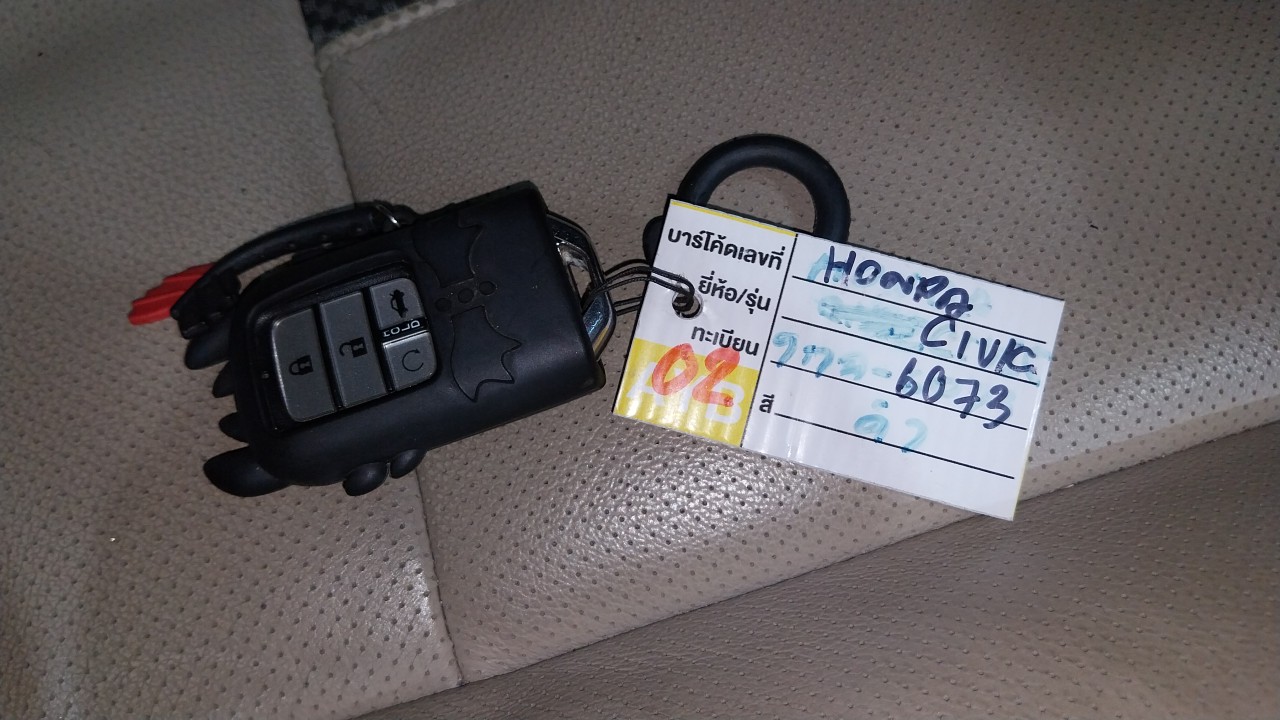 HOLD
บาร์โค้ดเลขที่ HONDA
ยี่ห้อ/รุ่น CIVIC
ทะเบียน 6073
02
สี